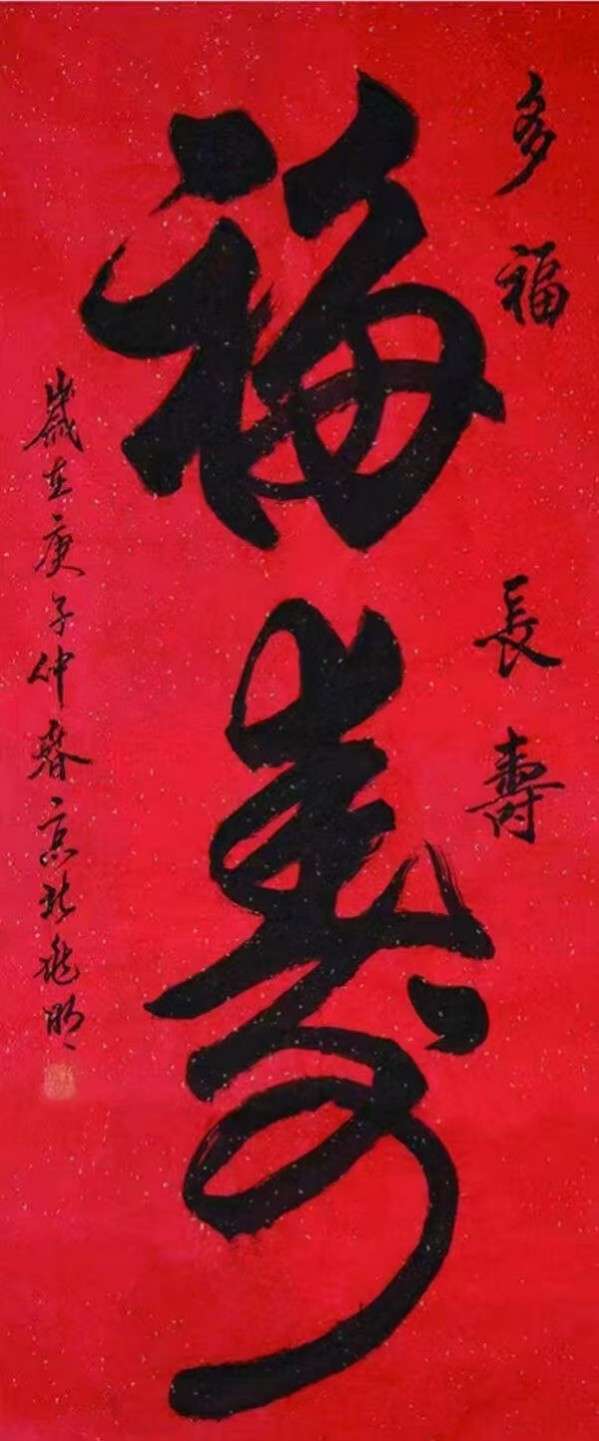 多福
長壽
福壽
歲在庚子仲春京北